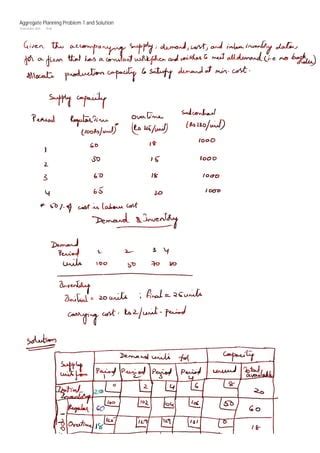 Aggregate Planning Problem 1 and Solution
Given the accompanying supply, demand, cost, and inventory data
for a firm that has a constant workforce and wishes to meet all demand (i.e no back orders)
Allocate production capacity to satisfy demand at min. cost.
Supply capacity
Period Regular time Overtime Subcontract
(100Rs/unit)* (Rs 125/unit) (Rs 130/unit)
1 60 18 1000
2 50 15 1000
3 60 18 1000
4 65 20 1000
* 50% of cost is labour cost
Demand & Inventory
Demand
Period 1 2 3 4
Units 100 50 70 80
Inventory
Initial = 20 units ; final = 25 units
Carrying cost - Rs 2/unit-period
Solution
Demand units for Capacity
Supply units from Period Period Period Period unused Total available
Initial Inventory 20 0 2 4 6 8 20
Regular 60 100 102 104 106 50 60
Overtime 18 125 127 129 131 0 18